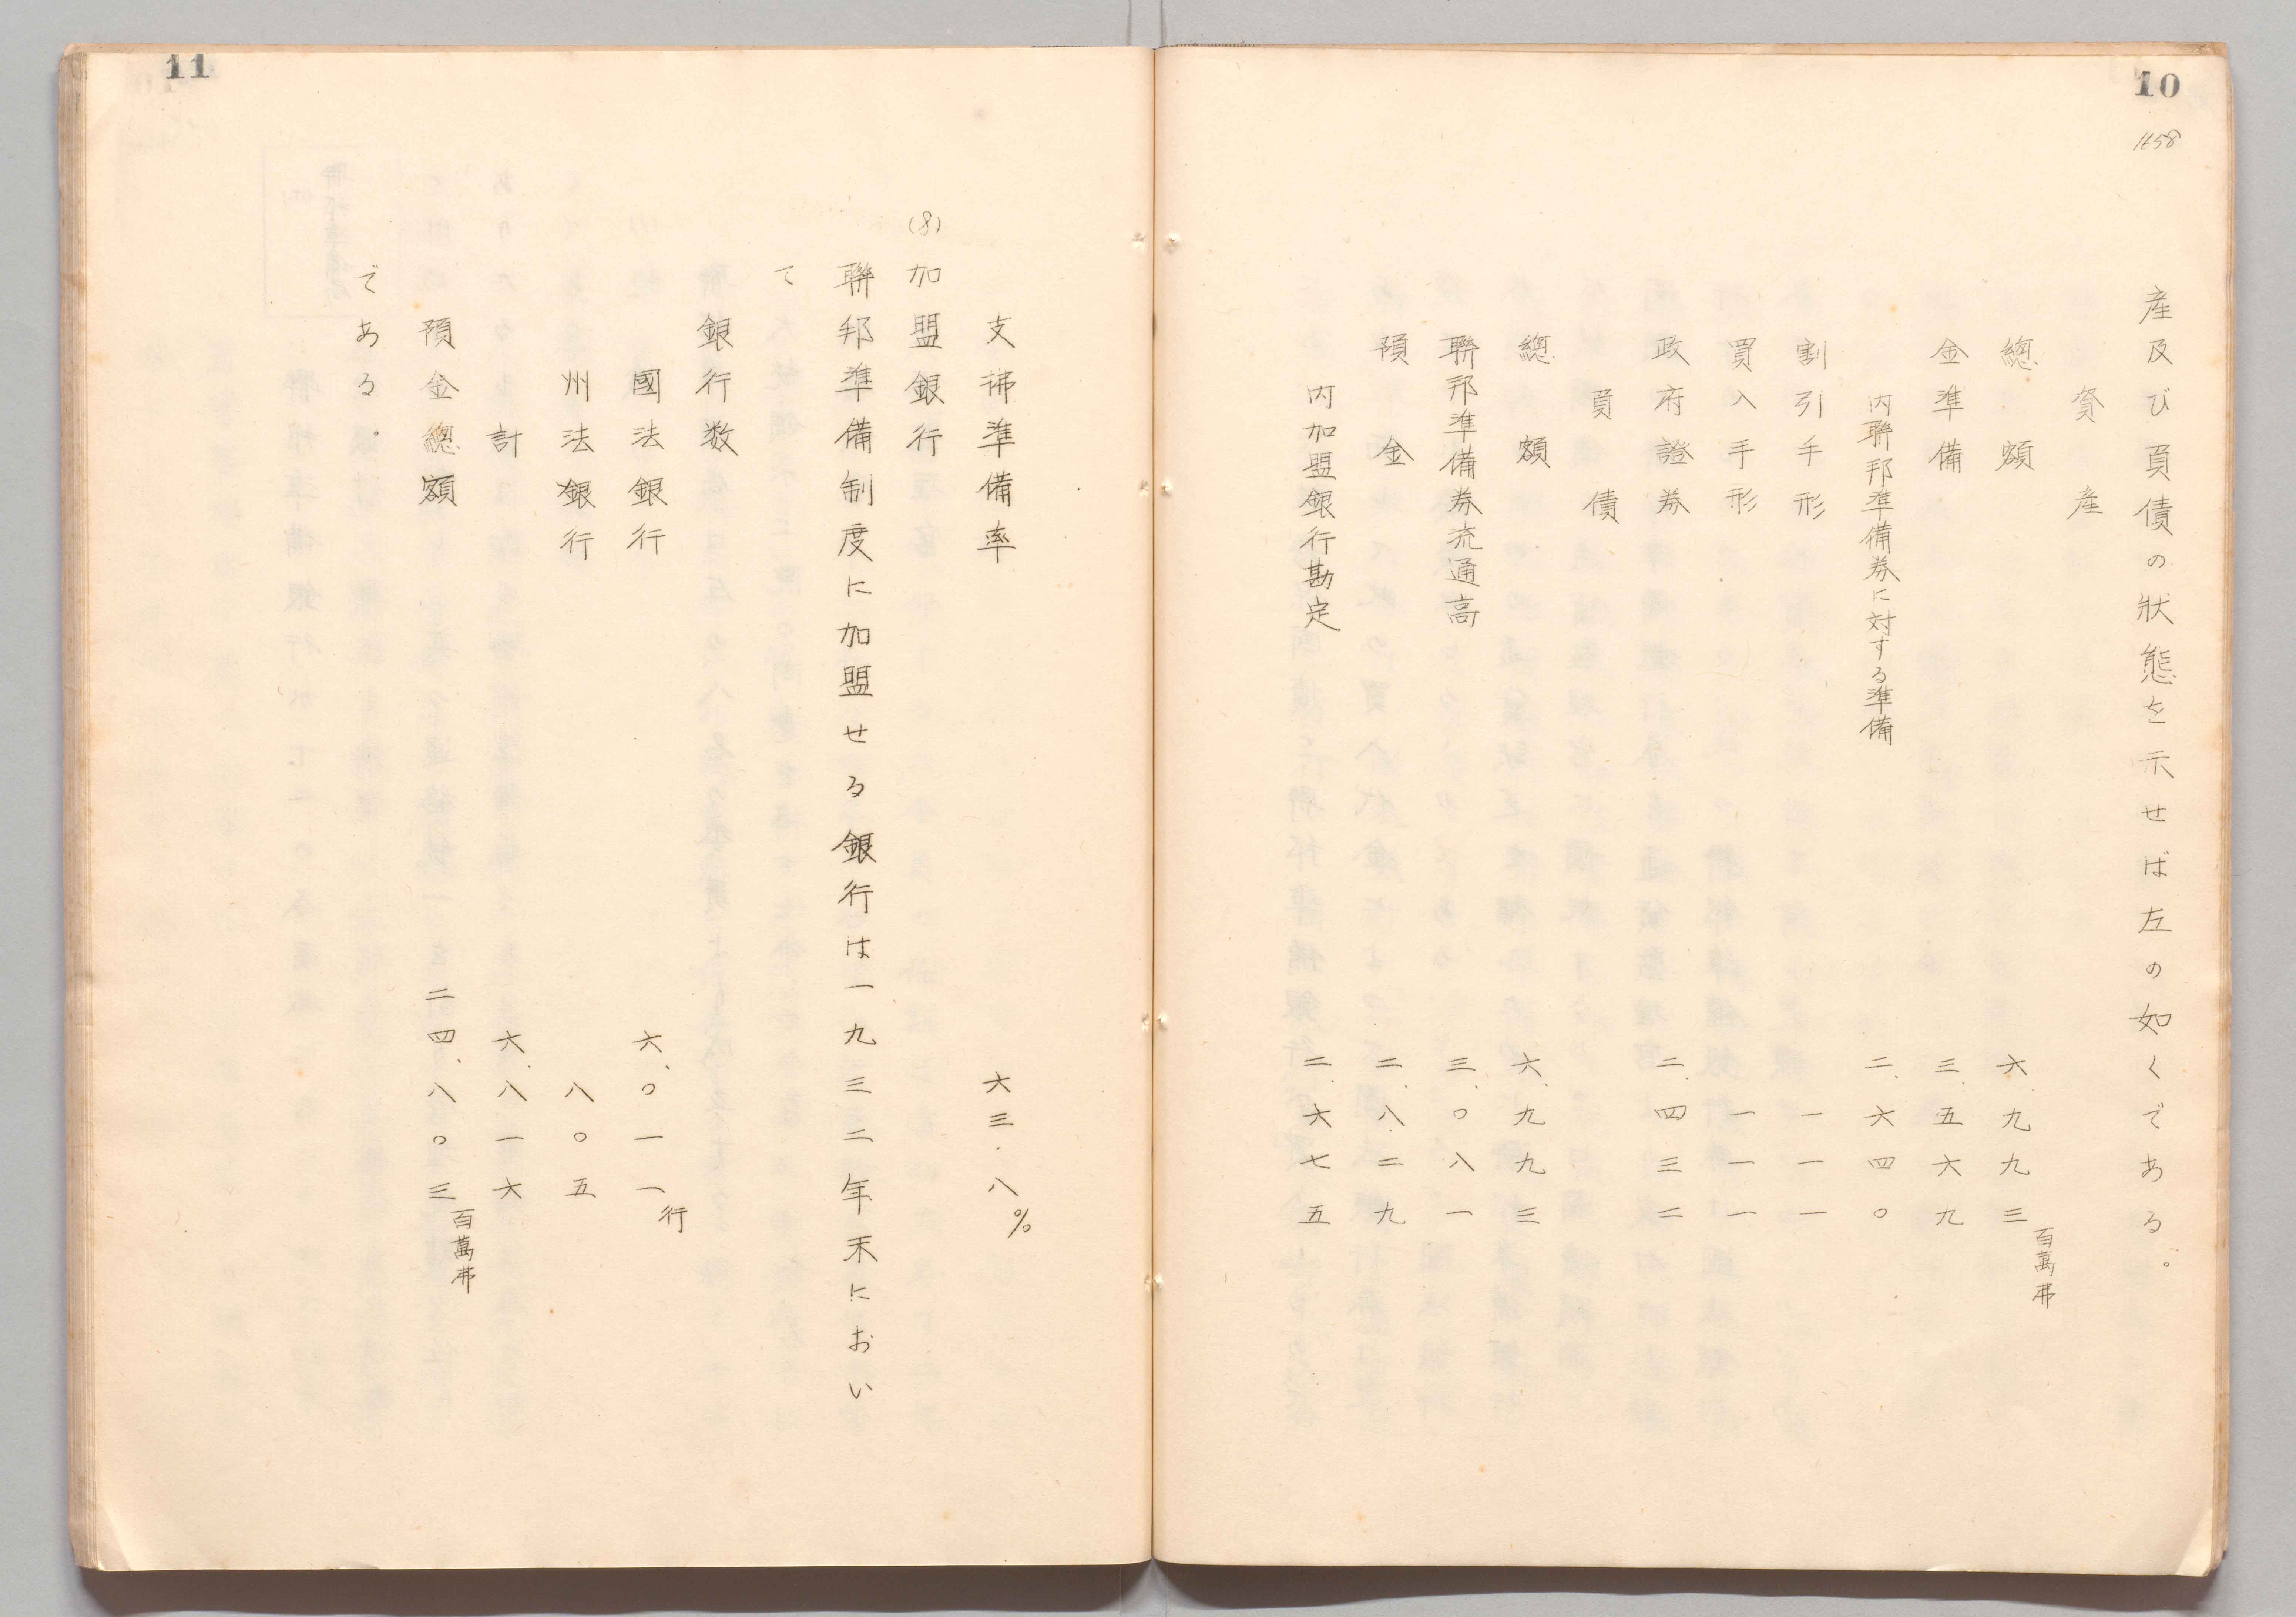 10
1658
産及び負債の狀態を示せば左の如くである。
資産
總額 六、九九三百萬弗
金準備 三、五六九
内聯邦準備券に対する準備 二、六四〇
割引手形 一一一
買入手形 一一一
政府證券 二、四三二
負債
總額 六、九九三
聯邦準備券流通高 三、〇八一
預金 二、八二九
内加盟銀行勘定 二、六七五
11
支拂準備率 六三.八%
(8)加盟銀行
聯邦準備制度に加盟せる銀行は一九三二年末におい
て
銀行数
國法銀行 六、〇一一行
州法銀行 八〇五
計 六、八一六
預金總額 二四、八〇三百萬弗
である。